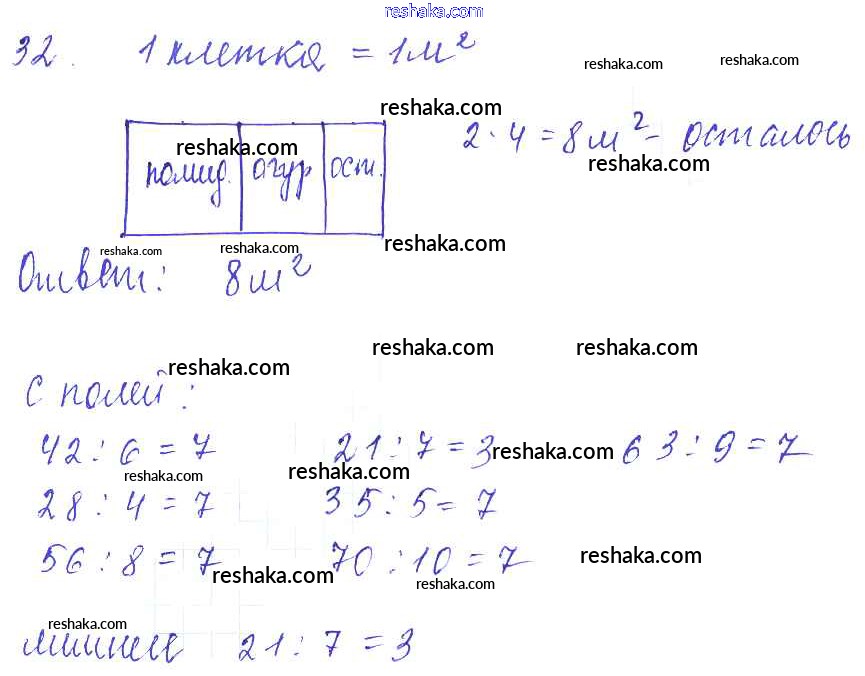 reshaka.com
32. 1 клетка = 1 м²
reshaka.com reshaka.com
reshaka.com
2 · 4 = 8 м² - осталось
reshaka.com
reshaka.com
помид. огур ост.
reshaka.com
reshaka.com reshaka.com
Ответ: 8 м²
reshaka.com reshaka.com
reshaka.com
С полей:
42 : 6 = 7 21 : 7 = 3 63 : 9 = 7
reshaka.com
reshaka.com reshaka.com
28 : 4 = 7 35 : 5 = 7
56 : 8 = 7 70 : 10 = 7
reshaka.com
reshaka.com reshaka.com
reshaka.com
лишнее 21 : 7 = 3